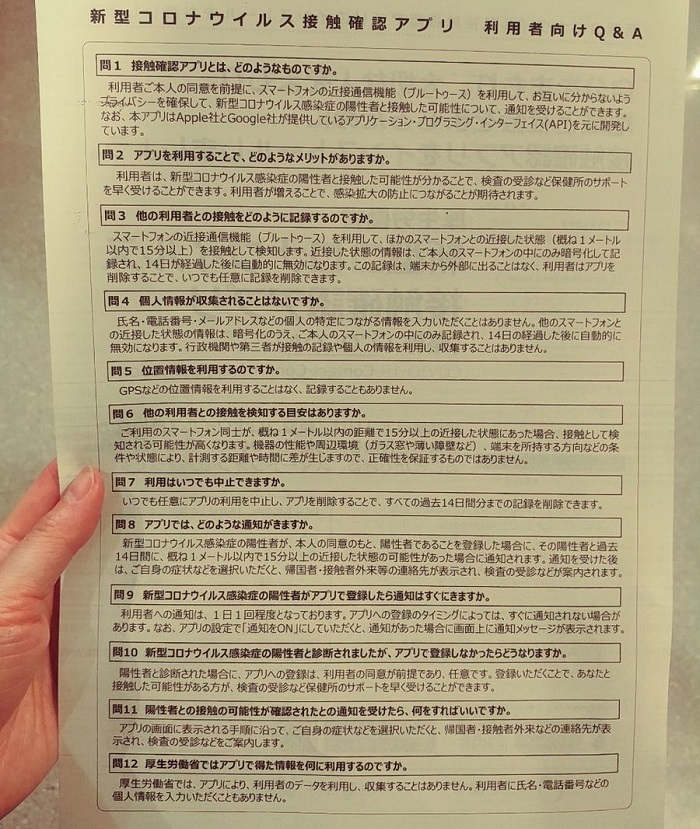 新型コロナウイルス接触確認アプリ 利用者向けQ&A
問1 接触確認アプリとは、どのようなものですか。
利用者ご本人の同意を前提に、スマートフォンの近接通信機能（ブルートゥース）を利用して、お互いに分からないよう
プライバシーを確保して、新型コロナウイルス感染症の陽性者と接触した可能性について、通知を受けることができます。
なお、本アプリはApple社とGoogle社が提供しているアプリケーション・プログラミング・インターフェイス(API)を元に開発し
ています。
問2 アプリを利用することで、どのようなメリットがありますか。
利用者は、新型コロナウイルス感染症の陽性者と接触した可能性が分かることで、検査の受診など保健所のサポート
を早く受けることができます。利用者が増えることで、感染拡大の防止につながることが期待されます。
問3 他の利用者との接触をどのように記録するのですか。
スマートフォンの近接通信機能（ブルートゥース）を利用して、ほかのスマートフォンとの近接した状態（概ね１メートル
以内で15分以上）を接触として検知します。近接した状態の情報は、ご本人のスマートフォンの中にのみ暗号化して記
録され、14日が経過した後に自動的に無効になります。この記録は、端末から外部に出ることはなく、利用者はアプリを
削除することで、いつでも任意に記録を削除できます。
問4 個人情報が収集されることはないですか。
氏名・電話番号・メールアドレスなどの個人の特定につながる情報を入力いただくことはありません。他のスマートフォンと
の近接した状態の情報は、暗号化のうえ、ご本人のスマートフォンの中にのみ記録され、14日の経過した後に自動的に
無効になります。行政機関や第三者が接触の記録や個人の情報を利用し、収集することはありません。
問5 位置情報を利用するのですか。
GPSなどの位置情報を利用することはなく、記録することもありません。
問6 他の利用者との接触を検知する目安はありますか。
ご利用のスマートフォン同士が、概ね１メートル以内の距離で15分以上の近接した状態にあった場合、接触として検
知される可能性が高くなります。機器の性能や周辺環境（ガラス窓や薄い障壁など）、端末を所持する方向などの条
件や状態により、計測する距離や時間に差が生じますので、正確性を保証するものではありません。
問7 利用はいつでも中止できますか。
いつでも任意にアプリの利用を中止し、アプリを削除することで、すべての過去14日間分までの記録を削除できます。
問8 アプリでは、どのような通知がきますか。
新型コロナウイルス感染症の陽性者が、本人の同意のもと、陽性者であることを登録した場合に、その陽性者と過去
14日間に、概ね１メートル以内で15分以上の近接した状態の可能性があった場合に通知されます。通知を受けた後
は、ご自身の症状などを選択いただくと、帰国者・接触者外来等の連絡先が表示され、検査の受診などが案内されます。
問9 新型コロナウイルス感染症の陽性者がアプリで登録したら通知はすぐにきますか。
利用者への通知は、１日１回程度となっております。アプリへの登録のタイミングによっては、すぐに通知されない場合が
あります。なお、アプリの設定で「通知をON」にしていただくと、通知があった場合に画面上に通知メッセージが表示されます。
問10 新型コロナウイルス感染症の陽性者と診断されましたが、アプリで登録しなかったらどうなりますか。
陽性者と診断された場合に、アプリへの登録は、利用者の同意が前提であり、任意です。登録いただくことで、あなたと
接触した可能性がある方が、検査の受診など保健所のサポートを早く受けることができます。
問11 陽性者との接触の可能性が確認されたとの通知を受けたら、何をすればいいですか。
アプリの画面に表示される手順に沿って、ご自身の症状などを選択いただくと、帰国者・接触者外来などの連絡先が表
示され、検査の受診などをご案内します。
問12 厚生労働省ではアプリで得た情報を何に利用するのですか。
厚生労働省では、アプリにより、利用者のデータを利用し、収集することはありません。利用者に氏名・電話番号などの
個人情報を入力いただくこともありません。